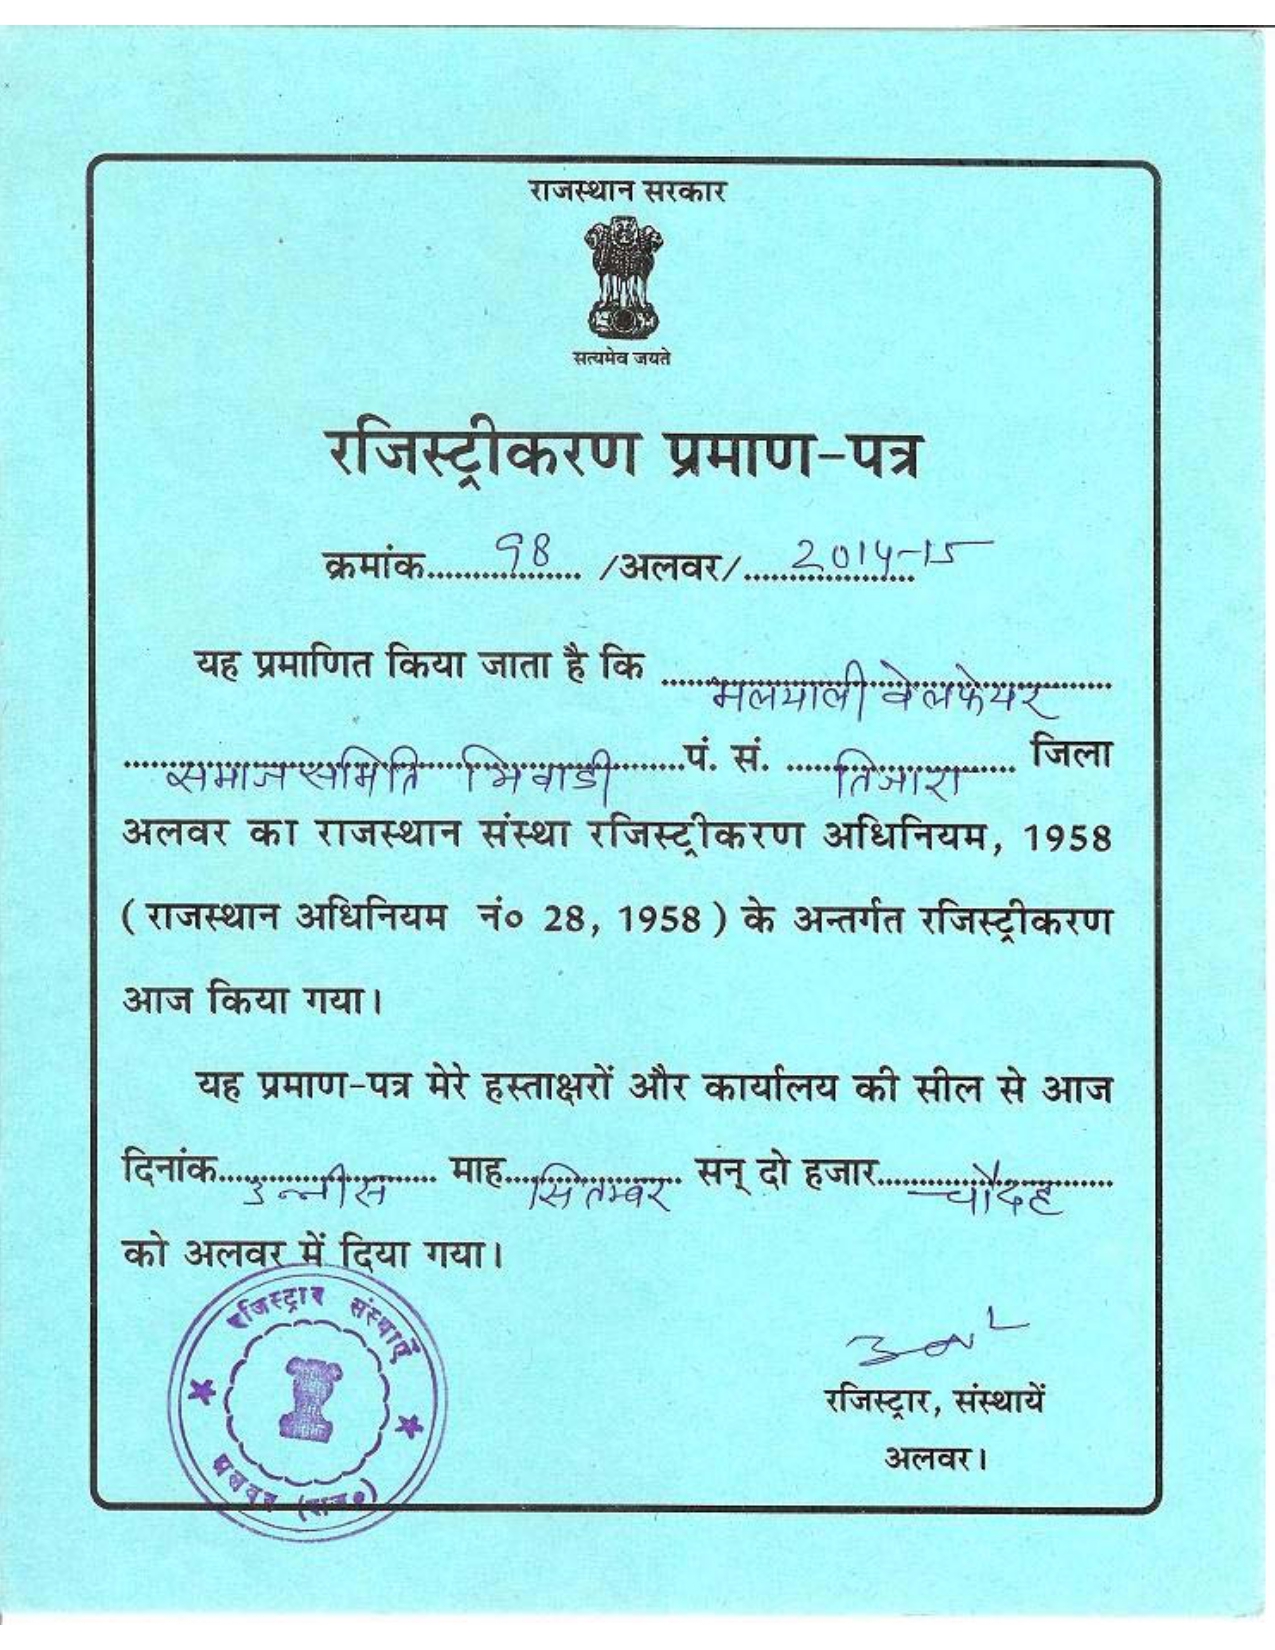 राजस्थान सरकार
सत्यमेव जयते
रजिस्ट्रीकरण प्रमाण-पत्र
क्रमांक 98 /अलवर/ 2014-15
यह प्रमाणित किया जाता है कि मलयाली वेलफेयर
समाज समिति भिवाडी पं. सं. तिजारा जिला
अलवर का राजस्थान संस्था रजिस्ट्रीकरण अधिनियम, 1958
(राजस्थान अधिनियम नं० 28, 1958) के अन्तर्गत रजिस्ट्रीकरण
आज किया गया।
यह प्रमाण-पत्र मेरे हस्ताक्षरों और कार्यालय की सील से आज
दिनांक उन्नीस माह सितम्बर सन् दो हजार चौदह
को अलवर में दिया गया।
रजिस्ट्रार संस्थाएँ
अलवर (राज०)
रजिस्ट्रार, संस्थायें
अलवर।